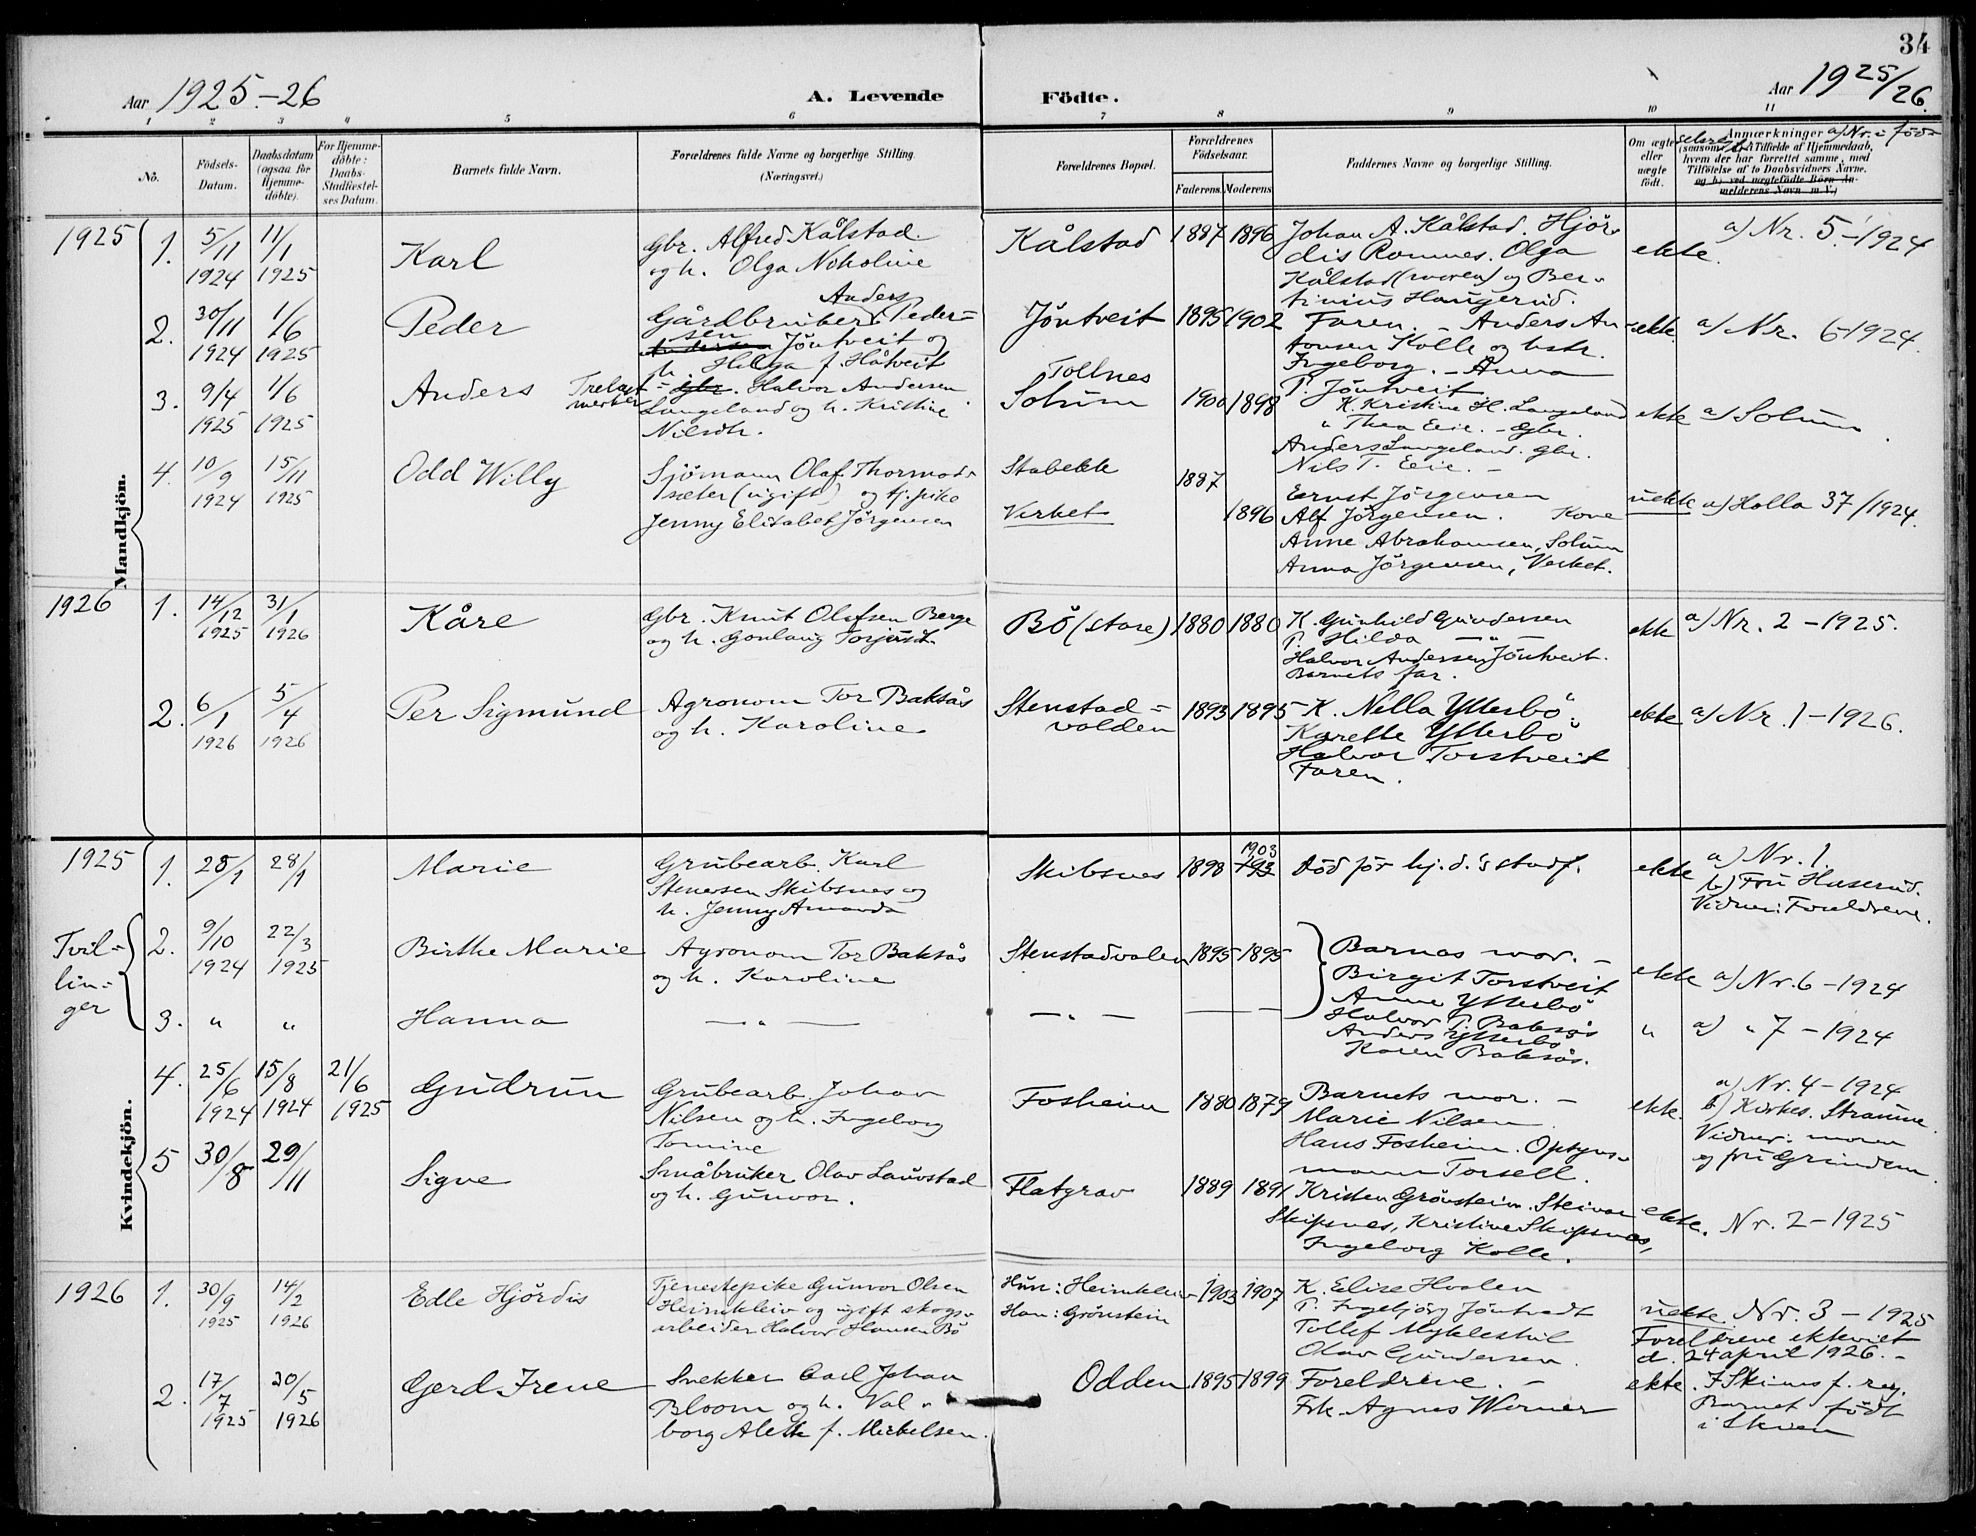 34
Aar 1925.-26 A. Levende Födte. Aar 1925/26.
1 2 3 4 5 6 7 8 9 10 11
No.
Födsels-
Datum.
Daabsdatum
(ogsaa for
Hjemme-
döbte).
For Hjemme-
döbte:
Daabs-
Stadfæstel-
ses Datum.
Barnets fulde Navn.
Forældrenes fulde Navne og borgerlige Stilling.
(Næringsvei.)
Forældrenes Bopæl.
Forældrenes
Födselsaar.
Faderens. Moderens.
Faddernes Navne og borgerlige Stilling.
Om ægte
eller
uægte
födt.
Anmærkninger a) Nr. i föds-
elsreg.
(saasom: b) i Tilfælde af Hjemmedaab,
hvem der har forrettet samme, med
Tilföielse af to Daabsvidners Navne,
og b) ved uægtefödte Börn An-
melderens Navn m. V.)
Mandkjön.
1925
1. 5/11 1924
11/1 1925
Karl
Gbr. Alfred Kålstad
og h. Olga Nikoline
Kålstad 1887 1896
Johan A. Kålstad. Hjör-
dis Romnes. Olga
Kålstad (moren) og Ber-
tinius Haugerud.
ekte.
a) Nr. 5-1924
2. 30/11 1924
1/6 1925
Peder
Anders
Gårdbruker Peder-
sen
Andersen Jöntveit og
h. Helga f. Håtveit
Jöntveit 1895 1902
Faren. - Anders An-
tonsen Kolle og hstr.
Ingeborg. - Anna
P. Jöntveit
ekte
a) Nr. 6-1924.
3. 9/4 1925
1/6 1925
Anders
Gbr. Halvor Andersen
Langeland og h. Kristine
Nilsdtr.
Tollnes
Solum 1900 1898
K. Kristine H. Langeland
" Thea Eeie. - Gbr.
Anders Langeland. gbr.
Nils T. Eeie. -
ekte
a) Solum.
4. 10/9 1924
15/11 1925
Odd Willy
Sjömann Olaf Thormod-
sæter (ugift) og tj. pike
Jenny Elisabet Jörgensen
Stabekk 1887
Verket 1896
Ernst Jörgensen
Alf Jörgensen. Kone
Anne Abrahamsen, Solum
Anna Jörgensen, Verket.
uekte
a) Holla 37/1924.
1926
1. 14/12 1925
31/1 1926
Kåre
Gbr. Knut Olafsen Berge
og h. Gonlaug Torjusd.
Bö (store) 1880 1880
K. Gunhild Gundersen
P. Hilda — " —
Halvor Andersen Jöntveit.
Barnets far.
ekte
a) Nr. 2 - 1925.
2. 6/1 1926
5/4 1926
Per Sigmund
Agronom Tor Baksås
og h. Karoline
Stenstad-
volden 1893 1895
K. Nella Ytterbö
Karette Ytterbö
Halvor Torstveit
Faren.
ekte
a) Nr. 1 - 1926.
Kvindekjön.
1925
1. 25/1
28/1
Marie
Grubearb. Karl
Stenersen Skibsnes og
h. Jenny Amanda
Skibsnes 1898 1903
Död för hj.d.'s stadf.
ekte
a) Nr. 1.
b) Fru Haserud.
Vidner: Foreldrene.
Tvil-
lin-
ger
2. 9/10 1924
22/3 1925
Birthe Marie
Agronom Tor Baksås
og h. Karoline
Stenstadvolen 1895 1895
Barnas mor. -
Birgit Torstveit
Anne Ytterbö
Halvor T. Baksås
Anders Ytterbö
Karen Baksås.
ekte
a) Nr. 6 - 1924
3. " "
Hanna
— " —
— " —
"
a) " 7 - 1924
4. 25/6 1924
15/8 1924
21/6 1925
Gudrun
Grubearb. Johan
Nilsen og h. Ingeborg
Tomine
Fosheim 1880 1879
Barnets mor. -
Marie Nilsen
Hans Fosheim. Opsyns-
mann Torsell.
ekte.
a) Nr. 4 - 1924
b) Kirkes. Stranne.
Vidner: moren
og fru Grindem.
5 30/8
29/11
Signe
Småbruker Olav Lauvstad
og h. Gunvor.
Flatgrav 1889 1891
Kristen Grönstein. Steinar
Skipsnes, Kristine Skipsnes,
Ingeborg Kolle.
ekte.
Nr. 2 - 1925
1926
1. 30/9 1925
14/2 1926
Edle Hjördis
Tjenestepike Gunvor Olsen
Heimkleiv og ugift skogs-
arbeider Halvor Hansen Bö
Hun: Heimkleiv
Han: Grönstein
1903 1907
K. Elise Hvalen
P. Ingebjörg Jöntvedt
Tollef Myklestul
Olav Gundersen.
uekte.
Nr. 3 - 1925
Foreldrene ekteviet
d. 24 april 1926. -
2. 17/7 1925
20/5 1926
Gerd Irene
Snekker Carl Johan
Bloom og h. Val-
borg Aleth f. Mickelsen.
Odden 1895 1899
Foreldrene. -
Frk. Agnes Werner
ekte.
I Skiens f. reg.
Barnet födt
i Skien